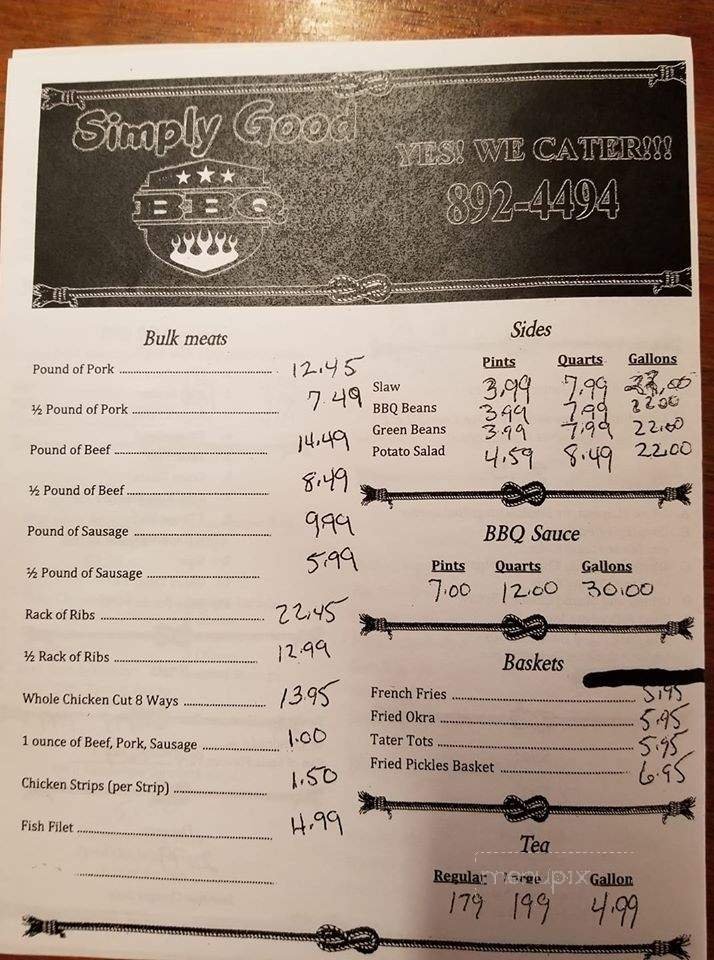 Simply Good
BBQ
YES! WE CATER!!!
892-4494
Bulk meats
Pound of Pork 12.45
½ Pound of Pork 7.49
Pound of Beef 14.49
½ Pound of Beef 8.49
Pound of Sausage 9.99
½ Pound of Sausage 5.99
Rack of Ribs 22.45
½ Rack of Ribs 12.99
Whole Chicken Cut 8 Ways 13.95
1 ounce of Beef, Pork, Sausage 1.00
Chicken Strips (per Strip) 1.50
Fish Filet 4.99
Sides
Pints Quarts Gallons
Slaw 3.99 7.99
BBQ Beans 3.99 7.99 22.00
Green Beans 3.99 7.99 22.00
Potato Salad 4.59 8.49 22.00
BBQ Sauce
Pints Quarts Gallons
7.00 12.00 30.00
Baskets
French Fries 5.95
Fried Okra 5.95
Tater Tots 5.95
Fried Pickles Basket 6.95
Tea
Regular Large Gallon
179 199 4.99
menupix